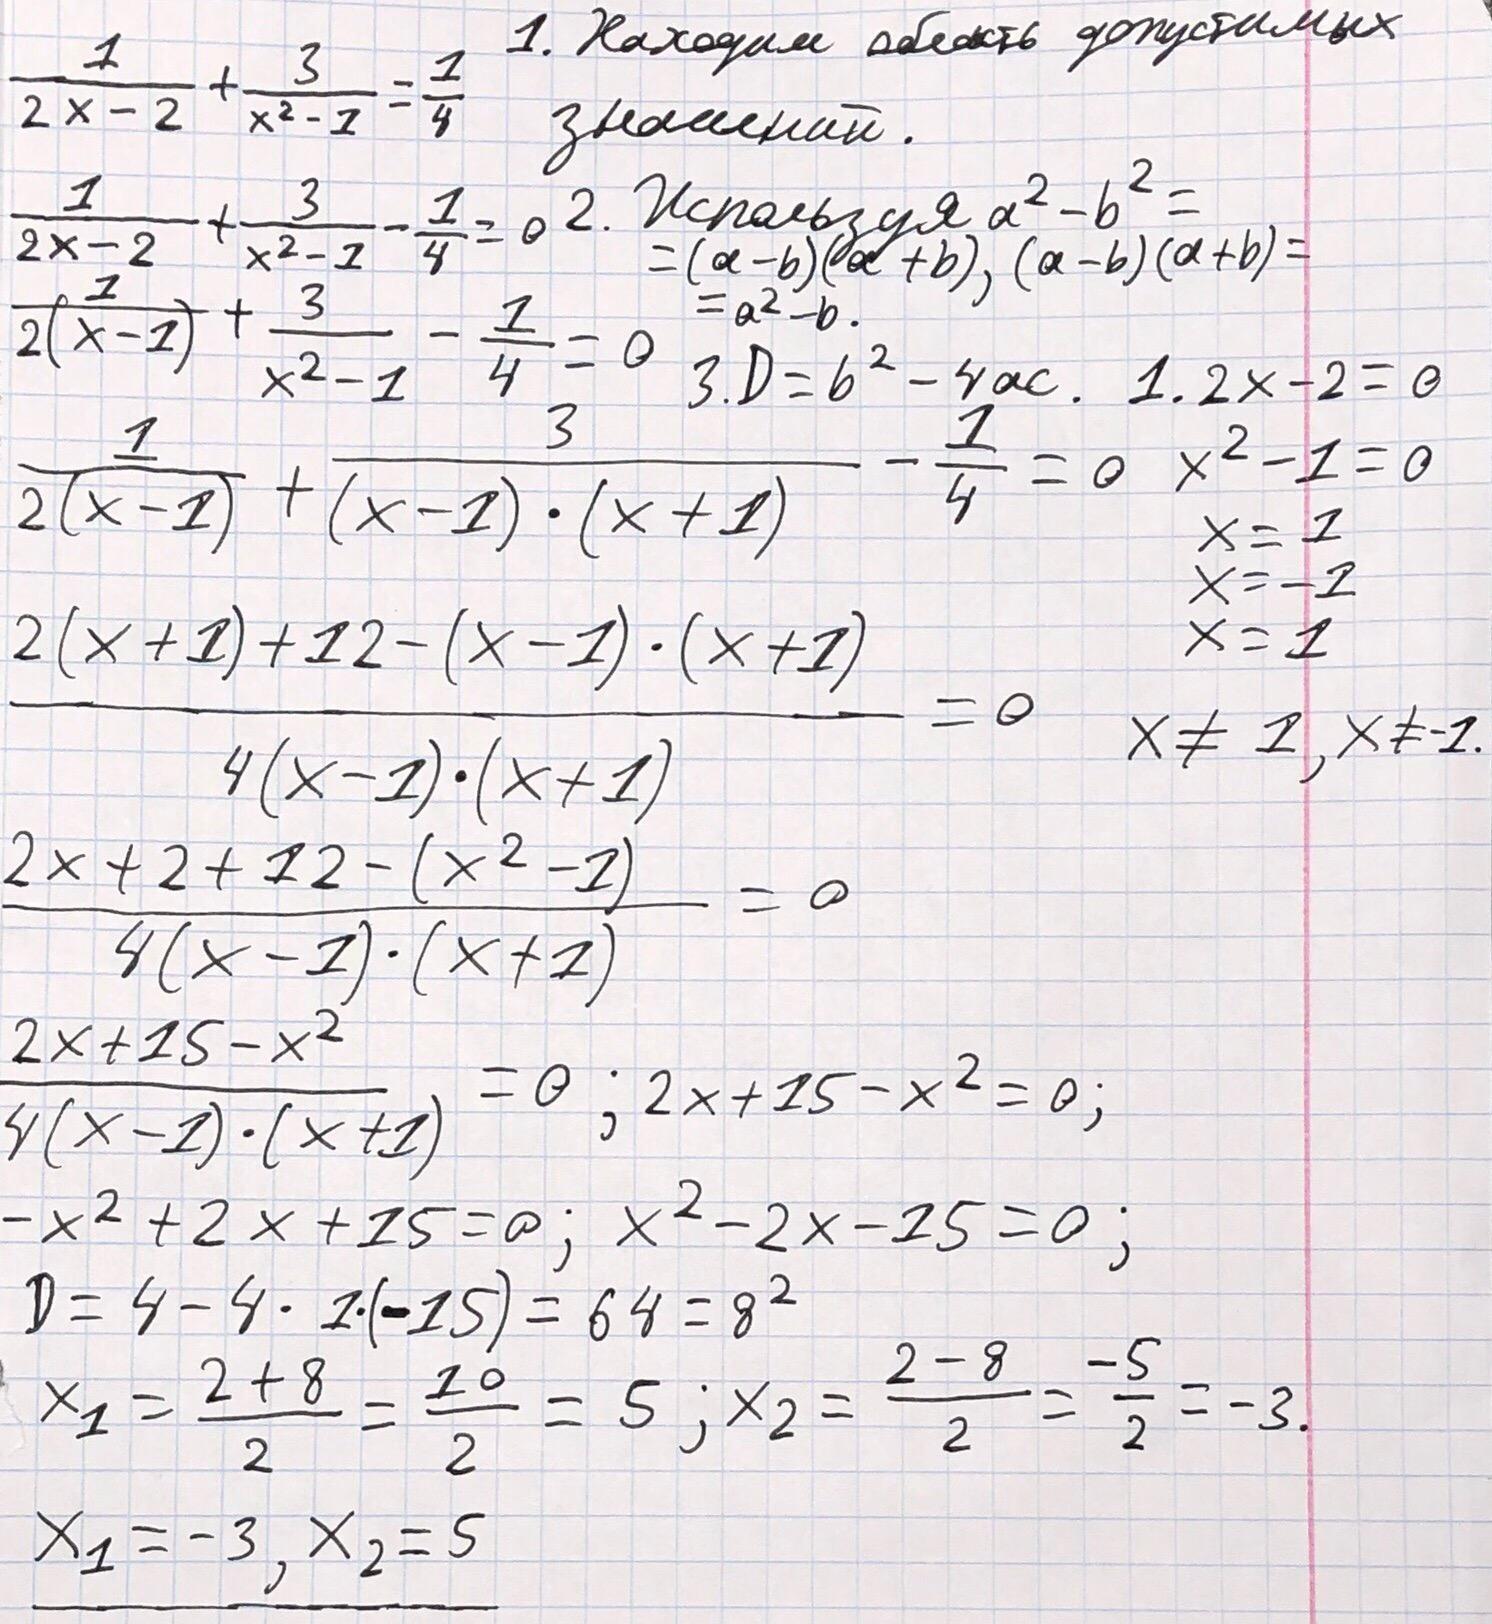 1/(2x-2) + 3/(x²-1) = 1/4
1. Находим область допустимых
значений.
1/(2x-2) + 3/(x²-1) - 1/4 = 0
2. Используя a²-b²=
=(a-b)(a+b), (a-b)(a+b)=
=a²-b.
1/(2(x-1)) + 3/(x²-1) - 1/4 = 0
3. D=b²-4ac.
1. 2x-2=0
1/(2(x-1)) + 3/((x-1)·(x+1)) - 1/4 = 0
x²-1=0
x=1
x=-1
x=1
x≠1, x≠-1.
(2(x+1)+12-(x-1)·(x+1))/(4(x-1)·(x+1)) = 0
(2x+2+12-(x²-1))/(4(x-1)·(x+1)) = 0
(2x+15-x²)/(4(x-1)·(x+1)) = 0; 2x+15-x²=0;
-x²+2x+15=0; x²-2x-15=0;
D=4-4·1·(-15)=64=8²
x₁=(2+8)/2=10/2=5; x₂=(2-8)/2=-5/2=-3.
x₁=-3, x₂=5